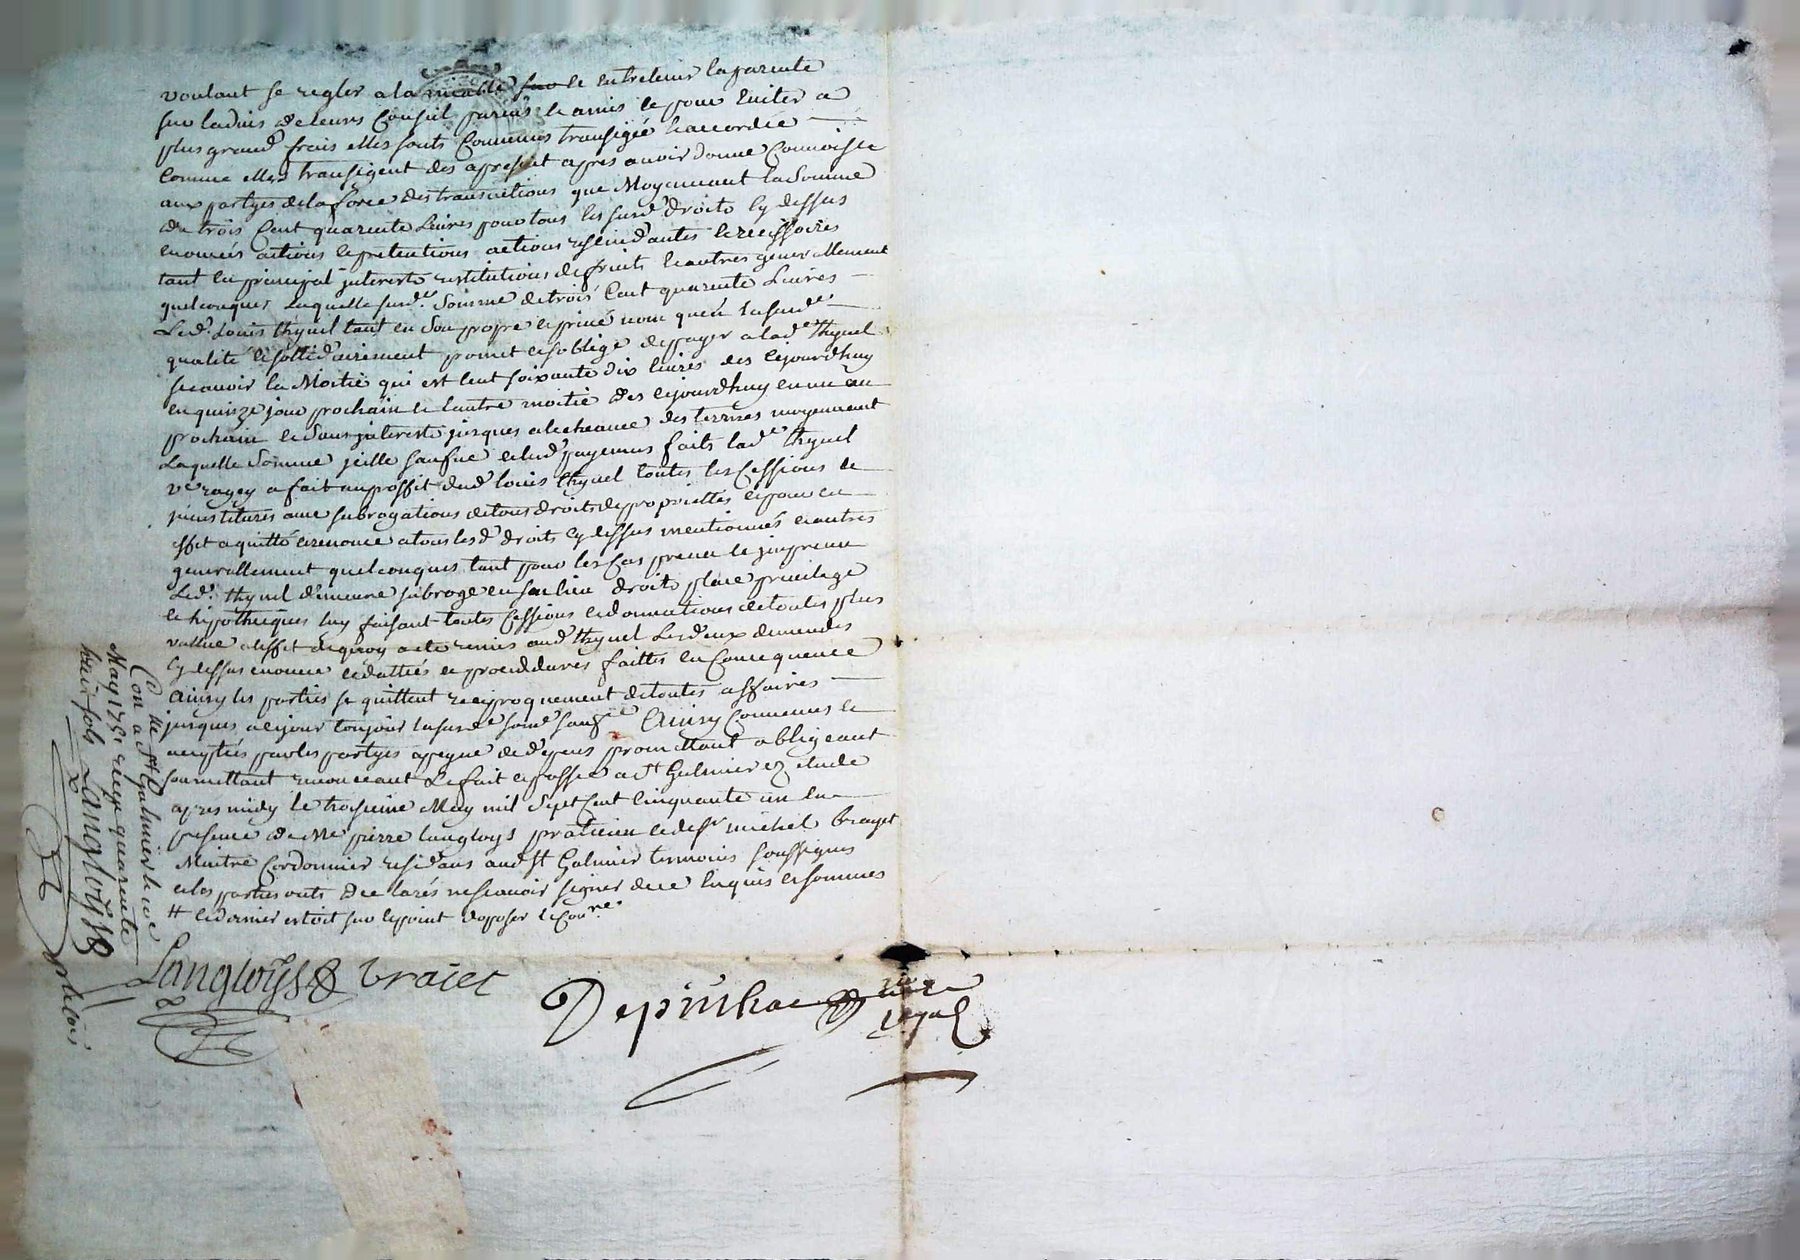 voulant se regler a la miable sur le entretenir la parente
sur ladvis de leurs Conseil parens et amis et pour Eviter a
plus grand frais elles sonts Convenus transigée et accordée
Comme elles transigent des apresent apres avoir donne Connoistre
aux partyes de la force des transactions que Moyennant la Somme
de trois Cent quarente Livres pour tous les susd. droits cy dessus
enoncés actions et pretentions actions rescindantes et recissoires
tant en principal interests restitutions de fruits et autres generallement
quelconques laquelle susd.e Somme de trois Cent quarente Livres
Led. Louis thynel tant en son propre et privé nom qu'en la susd.e
qualité et sollidairement promet et soblige de payer a lad.e thynel
scavoir la Moitié qui est Cent soixante dix livres des cejourdhuy
en quinze jour prochain et lautre moitie des cejourdhuy en un an
prochain et sans interests jusques a lecheance des termes moyennant
Laquelle Somme jcelle sauf ce et lesd. payemens faits lad.e thynel
v.e ragey a fait au proffit dud. louis thynel toutes les Cessions et
jnvestitures avec subrogations de tous droits de proprietés et pour cet
effet a quitté et renonce a tous lesd. droits cy dessus mentionnés et autres
generallement quelconques tant pour les Cas preveu et jmpreveu
Led. thynel demeure subroge en son lieu droits place privilege
et hipotheques luy faisant toutes Cessions et donnations de toutes plus
vallue a leffet de quoy a ete remis aud. thynel Les deux demendes
cy dessus enoncé et dattiés et procedures faittes en Consequence
Ainsy les parties se quittent reciproquement de toutes affaires
jusques a ce jour toujour la susd.e som.e sauf.ce Ainsy Convenus et
acceptés par les partyes a peyne de depens promettant obligeant
soumettant renonceant Le fait et passé a St Galmier ez etude
apres midy le troisieme May mil Sept Cent Cinquante un En
presence de Me pierre langloys praticien et de sr michel brayet
Maitre Cordonnier residans aud. St Galmier temoins soussignes
et les parties onts declarés ne scavoir signer de ce Enquis et sommes
# led. dernier estoit sur le point de poser le Con.re
Langloys braiet
Depinhac nre
royal
Con.lle a St Galmier le ce
May 1751 reçu quarente
huit sols Langloys